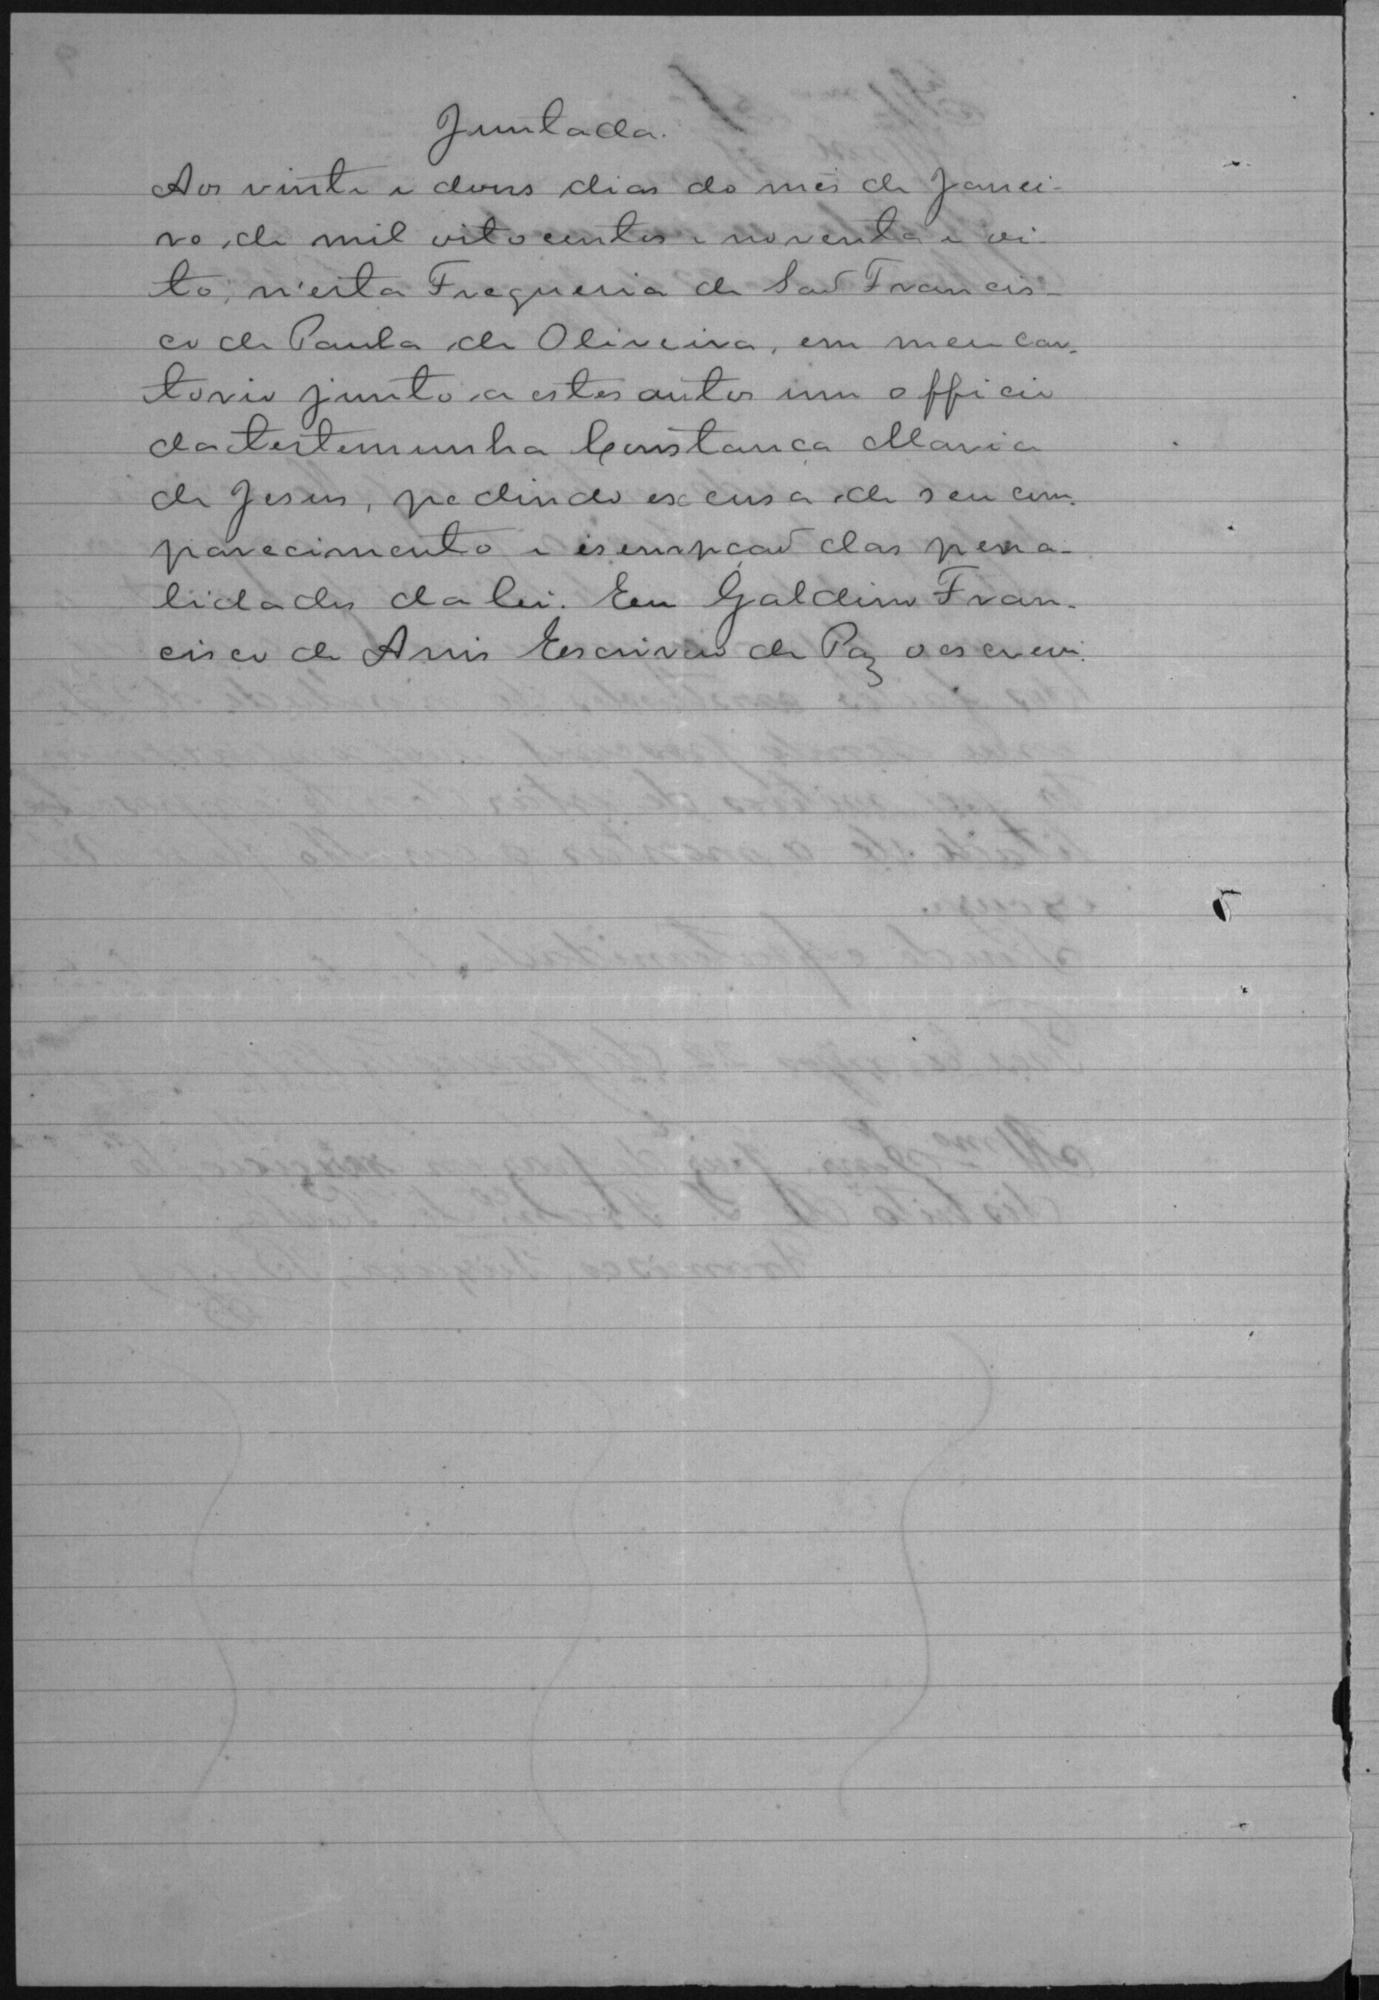 Juntada.
Aos vinte e dous dias do mês de Janei-
ro de mil oito centos e noventa e oi-
to, n'esta Freguesia de São Francis-
co de Paula de Oliveira, em meu car-
torio junto a estes autos um officio
da testemunha Constança Maria
de Jesus, pedindo escusa de seu com-
parecimento e isempção das pena-
lidades da lei. Eu Galdino Fran-
cisco de Assis Escrivão de Paz o escrevi.